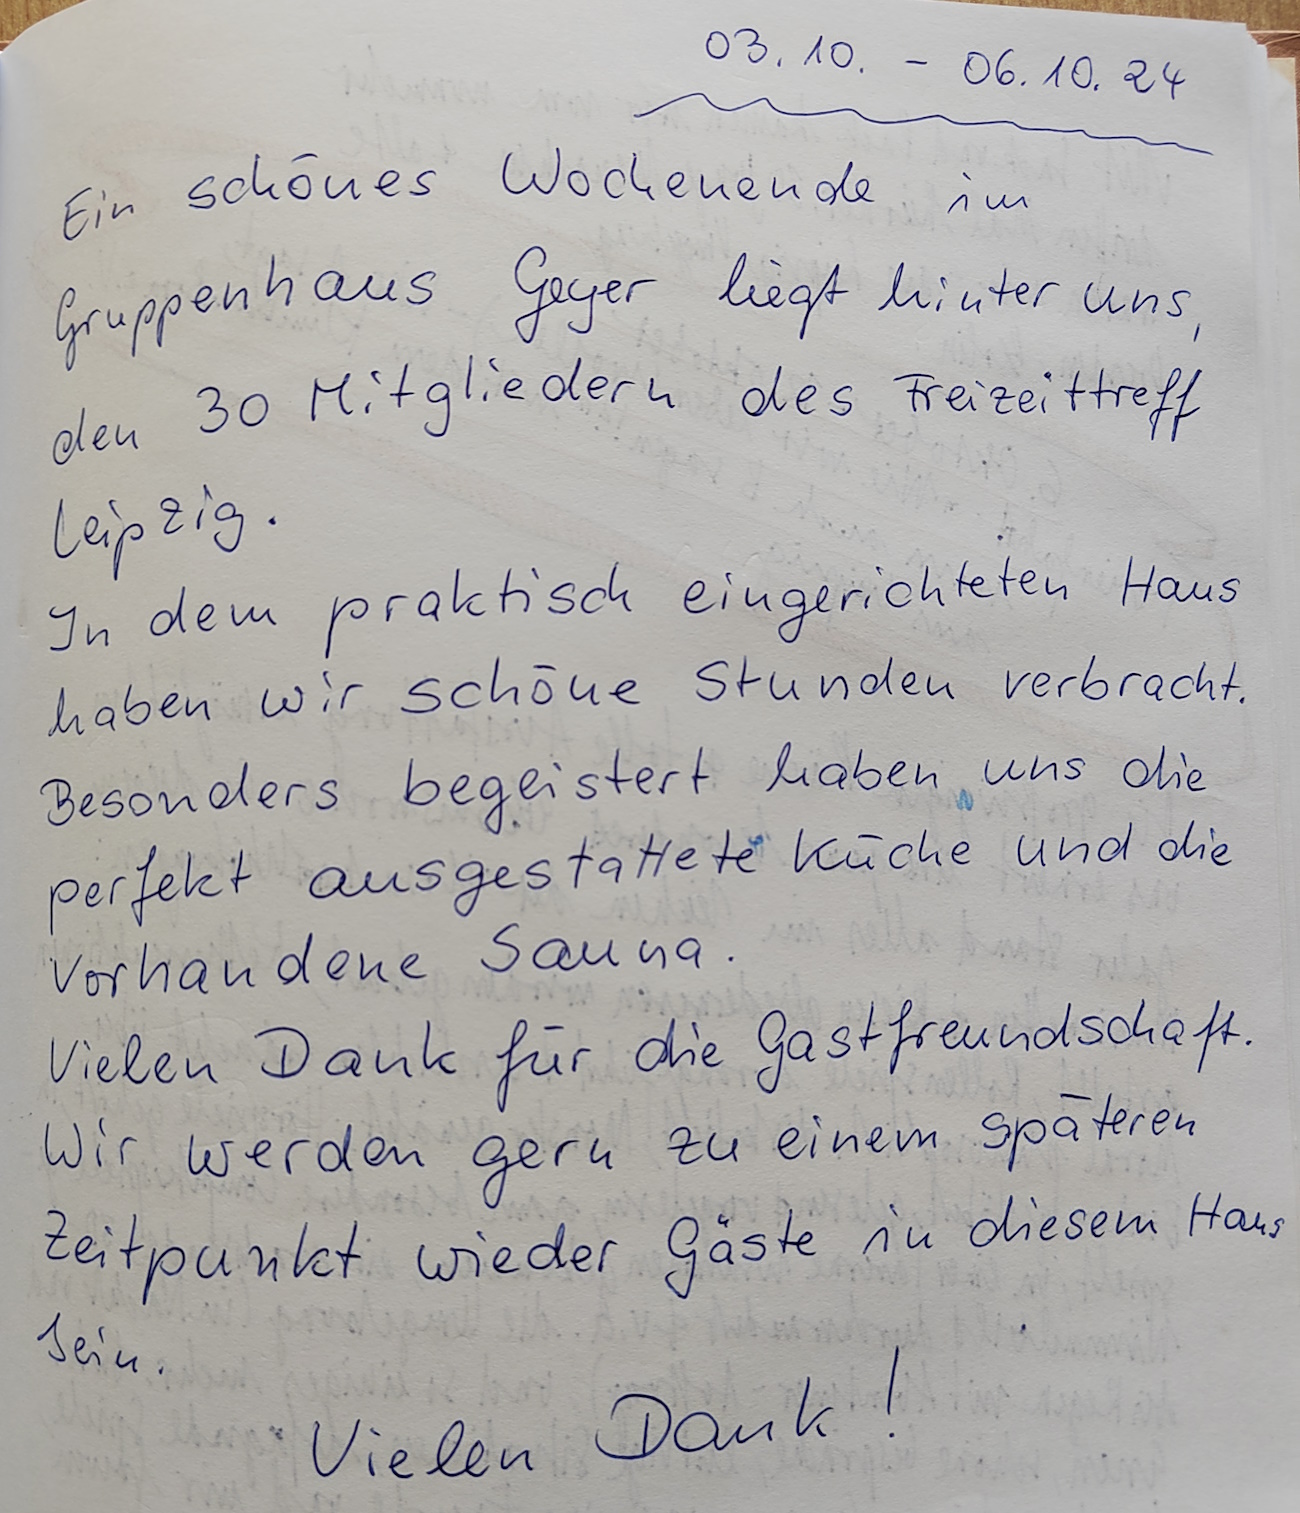 03.10. - 06.10.24
Ein schönes Wochenende im
Gruppenhaus Geyer liegt hinter uns,
den 30 Mitgliedern des Freizeittreff
Leipzig.
In dem praktisch eingerichteten Haus
haben wir schöne Stunden verbracht.
Besonders begeistert haben uns die
perfekt ausgestattete Küche und die
vorhandene Sauna.
Vielen Dank für die Gastfreundschaft.
Wir werden gern zu einem späteren
Zeitpunkt wieder Gäste in diesem Haus
sein.
Vielen Dank!